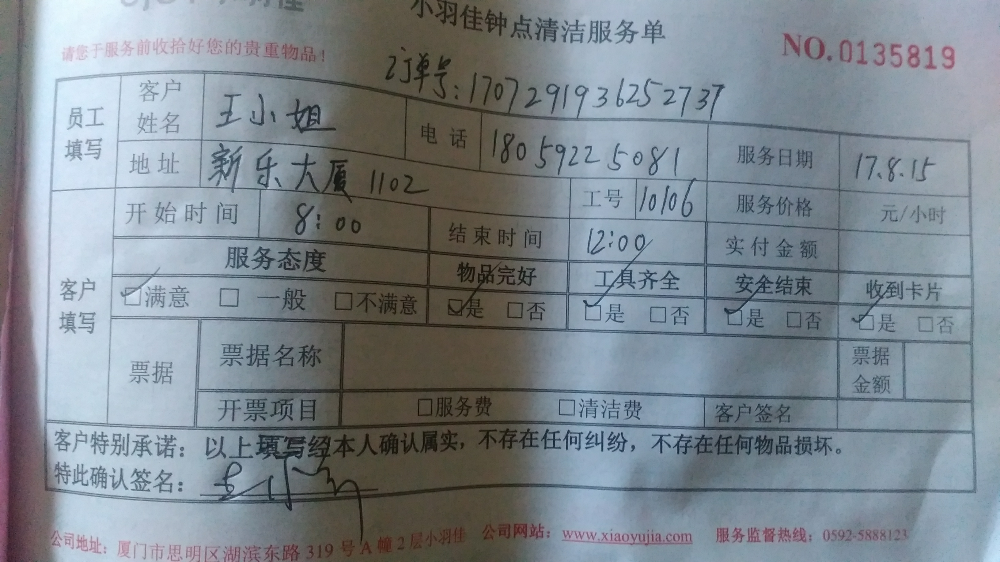 小羽佳钟点清洁服务单
请您于服务前收拾好您的贵重物品！
NO.0135819
订单号：1707291936252737
员工填写 客户姓名 王小姐 电话 18059225081 服务日期 17.8.15
地址 新乐大厦1102 工号 10106 服务价格 元/小时
客户填写 开始时间 8:00 结束时间 12:00 实付金额
服务态度 物品完好 工具齐全 安全结束 收到卡片
☑满意 □一般 □不满意 ☑是 □否 ☑是 □否 ☑是 □否 ☑是 □否
票据 票据名称 票据金额
开票项目 □服务费 □清洁费 客户签名
客户特别承诺：以上填写经本人确认属实，不存在任何纠纷，不存在任何物品损坏。
特此确认签名：
公司地址：厦门市思明区湖滨东路 319 号 A 幢 2 层小羽佳 公司网站：www.xiaoyujia.com 服务监督热线：0592-5888123